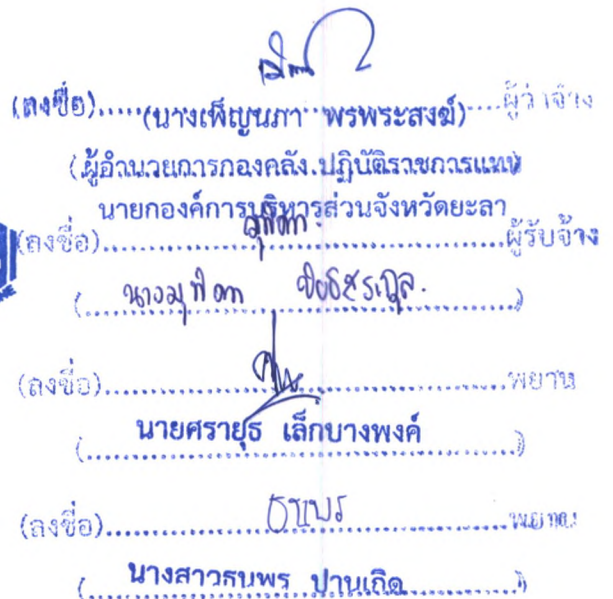 (ลงชื่อ).....(นางเพ็ญนภา พรพระสงฆ์)....ผู้ว่าจ้าง
(ผู้อำนวยการกองคลัง ปฏิบัติราชการแทน)
นายกองค์การบริหารส่วนจังหวัดยะลา
(ลงชื่อ)..........ผู้รับจ้าง
(ลงชื่อ)..........พยาน
(นายศรายุธ เล็กบางพงค์)
(ลงชื่อ)....ธนพร....พยาน
(นางสาวธนพร ปานเกิด)